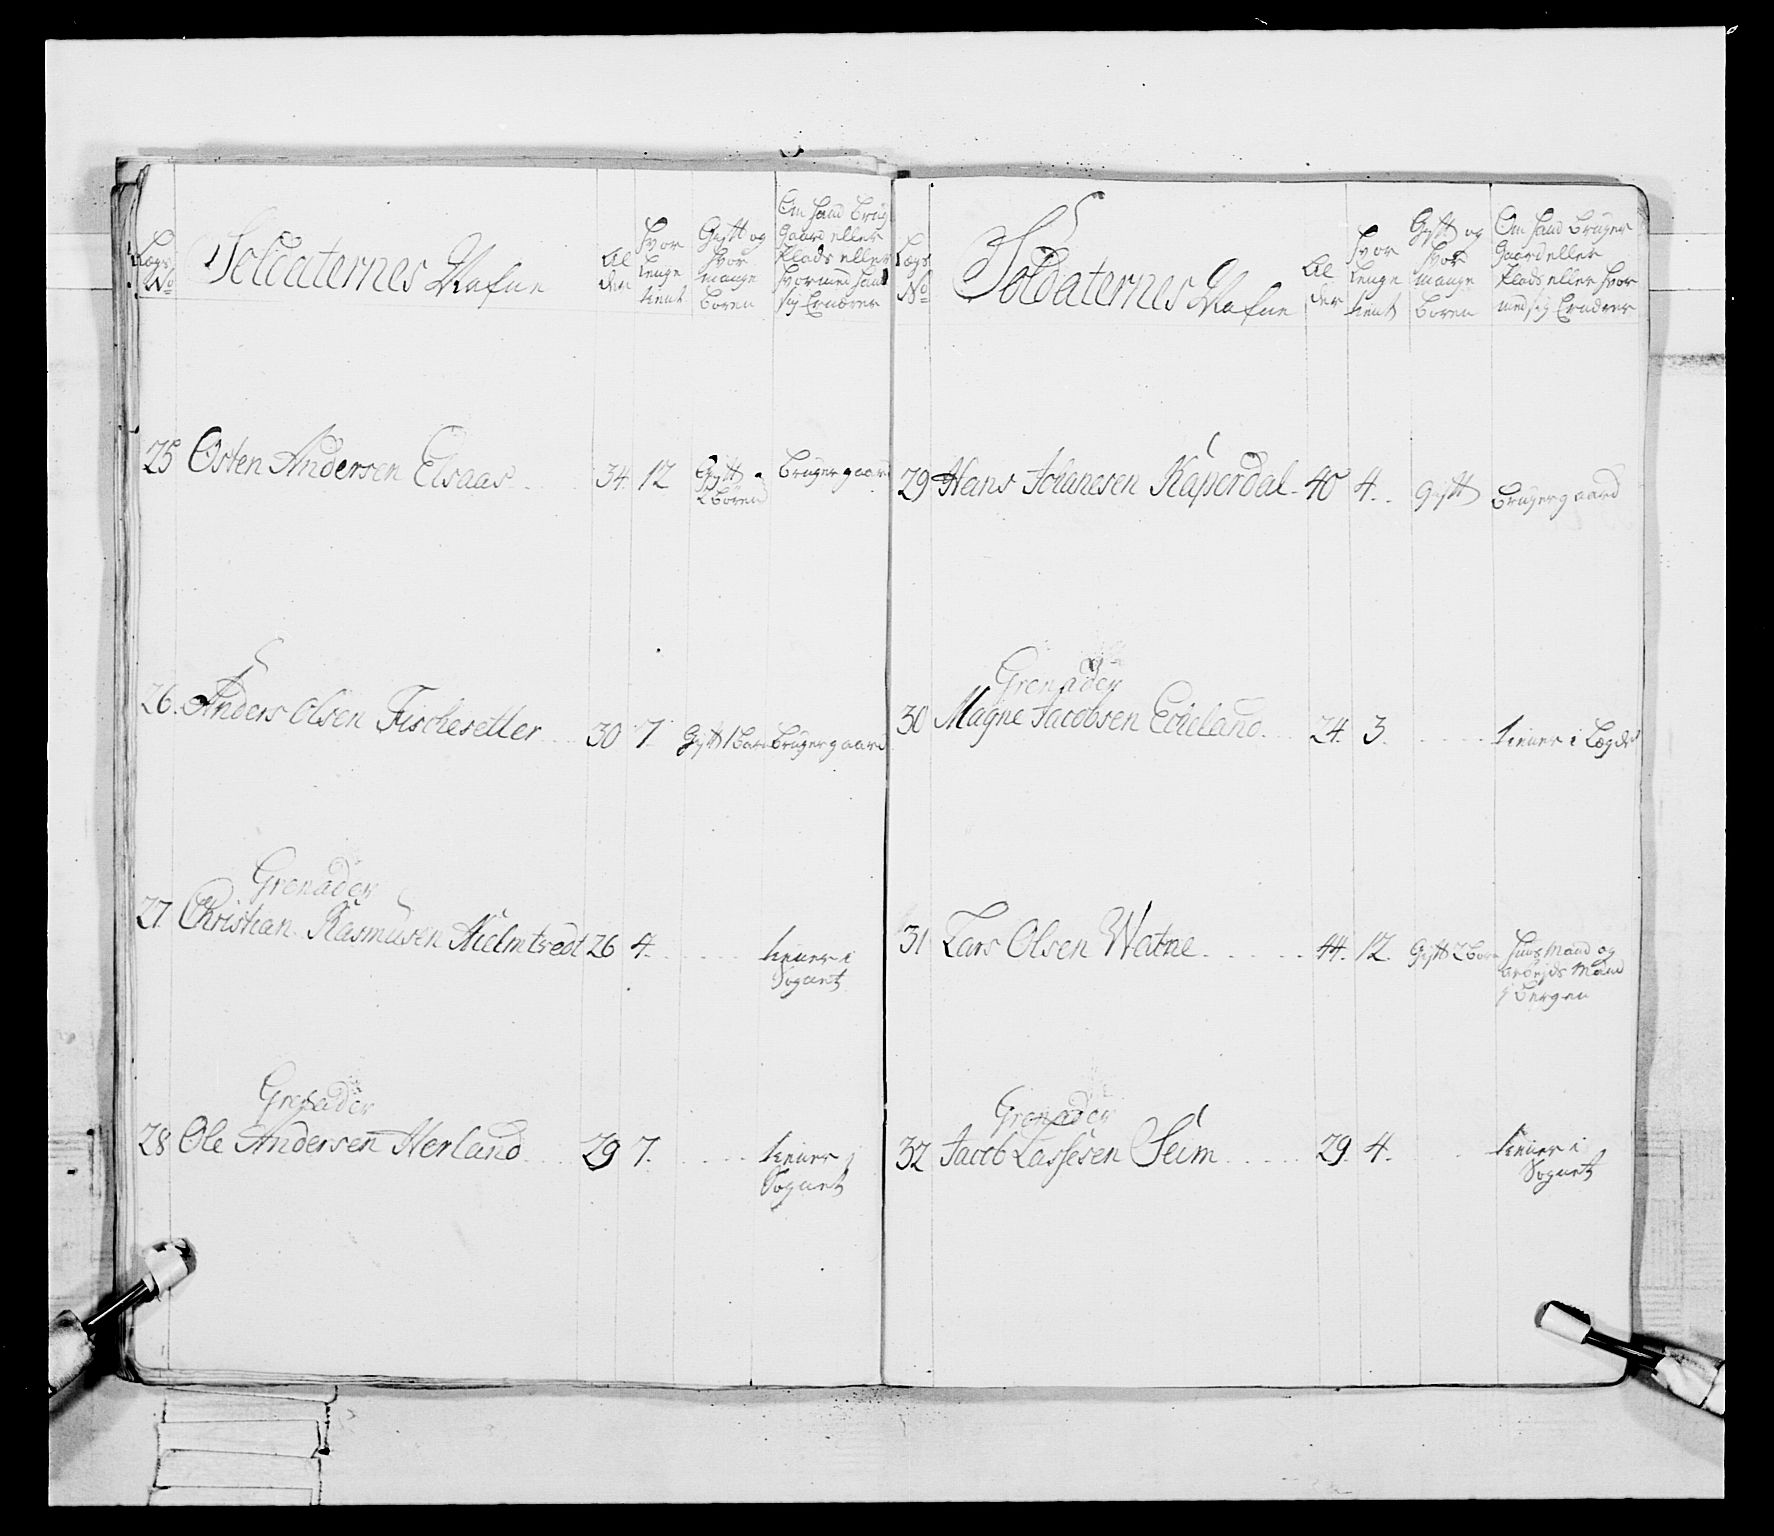 Lægs No
Soldaternes Nafne
Al der
Hvor lenge tient
Gift og hvor mange Børen
Om Hand brug Gaard eller Plads eller hvormed hand sig Ernærer
25 Osten Andersen Elsaas 34. 12 Gift 2 børen bruger gaard
26. Anders Olsen Fischesetter 30 7. Gift 1 barn bruger gaard
Grenader
27 Christian Rasmusen Hielmtvedt 26 4. tiener i
Sognet
Grenader
28 Ole Andersen Herland 29 7. tiener i
Sognet
Lægs No
Soldaternes Nafne
Al der
Hvor lenge tient
Gift og hvor mange Børen
Om Hand bruger Gaard eller Plads eller hvor med sig Ernærer
29 Hans Johanesen Kaperdal 40 4. Gift bruger gaard
Grenader
30 Magne Jacobsen Echeland 24. 3. tiener i Lægdet
31 Lars Olsen Watne 44. 12. Gift 2 børn huus Mand og
arbejds Mand
i bergen
Grenader
32 Jacob Lassesen Seim 29. 4. tiener i
Sognet